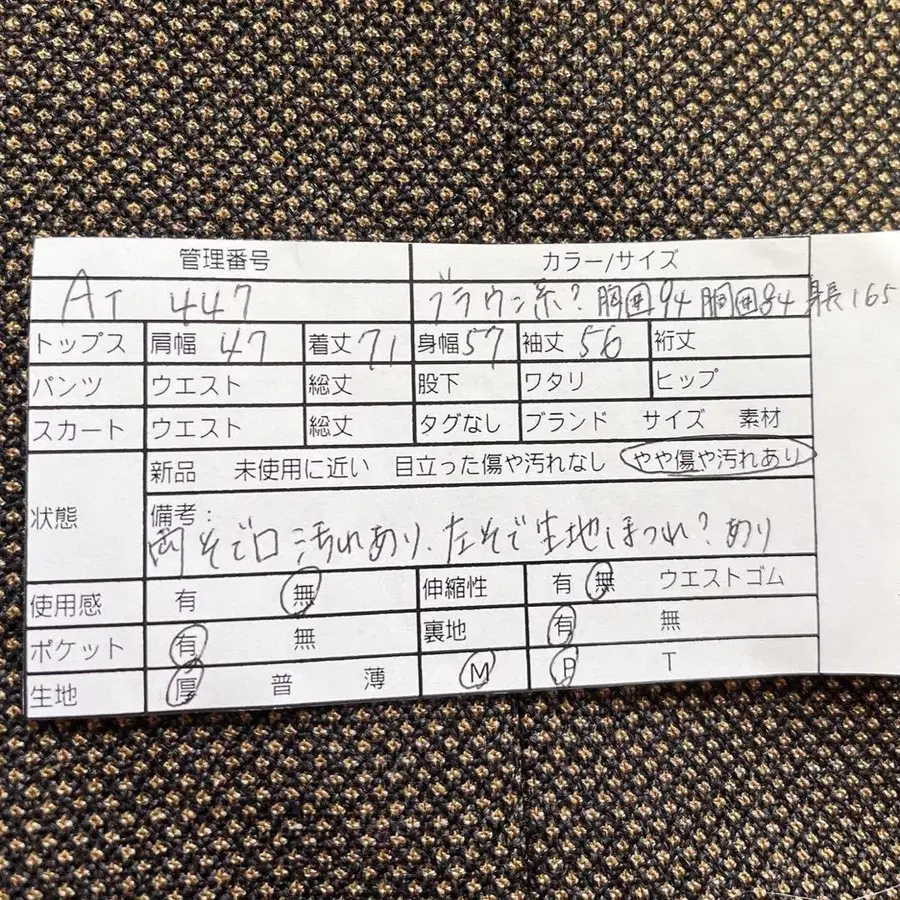 管理番号 カラー/サイズ
AT 447 ブラウン系? 胸囲94 胴囲84 身長165
トップス 肩幅 47 着丈 71 身幅 57 袖丈 56 裄丈
パンツ ウエスト 総丈 股下 ワタリ ヒップ
スカート ウエスト 総丈 タグなし ブランド サイズ 素材
状態 新品 未使用に近い 目立った傷や汚れなし やや傷や汚れあり
備考:
両そで口汚れあり、左そで生地ほつれ?あり
使用感 有 無 伸縮性 有 無 ウエストゴム
ポケット 有 無 裏地 有 無
生地 厚 普 薄 M P T